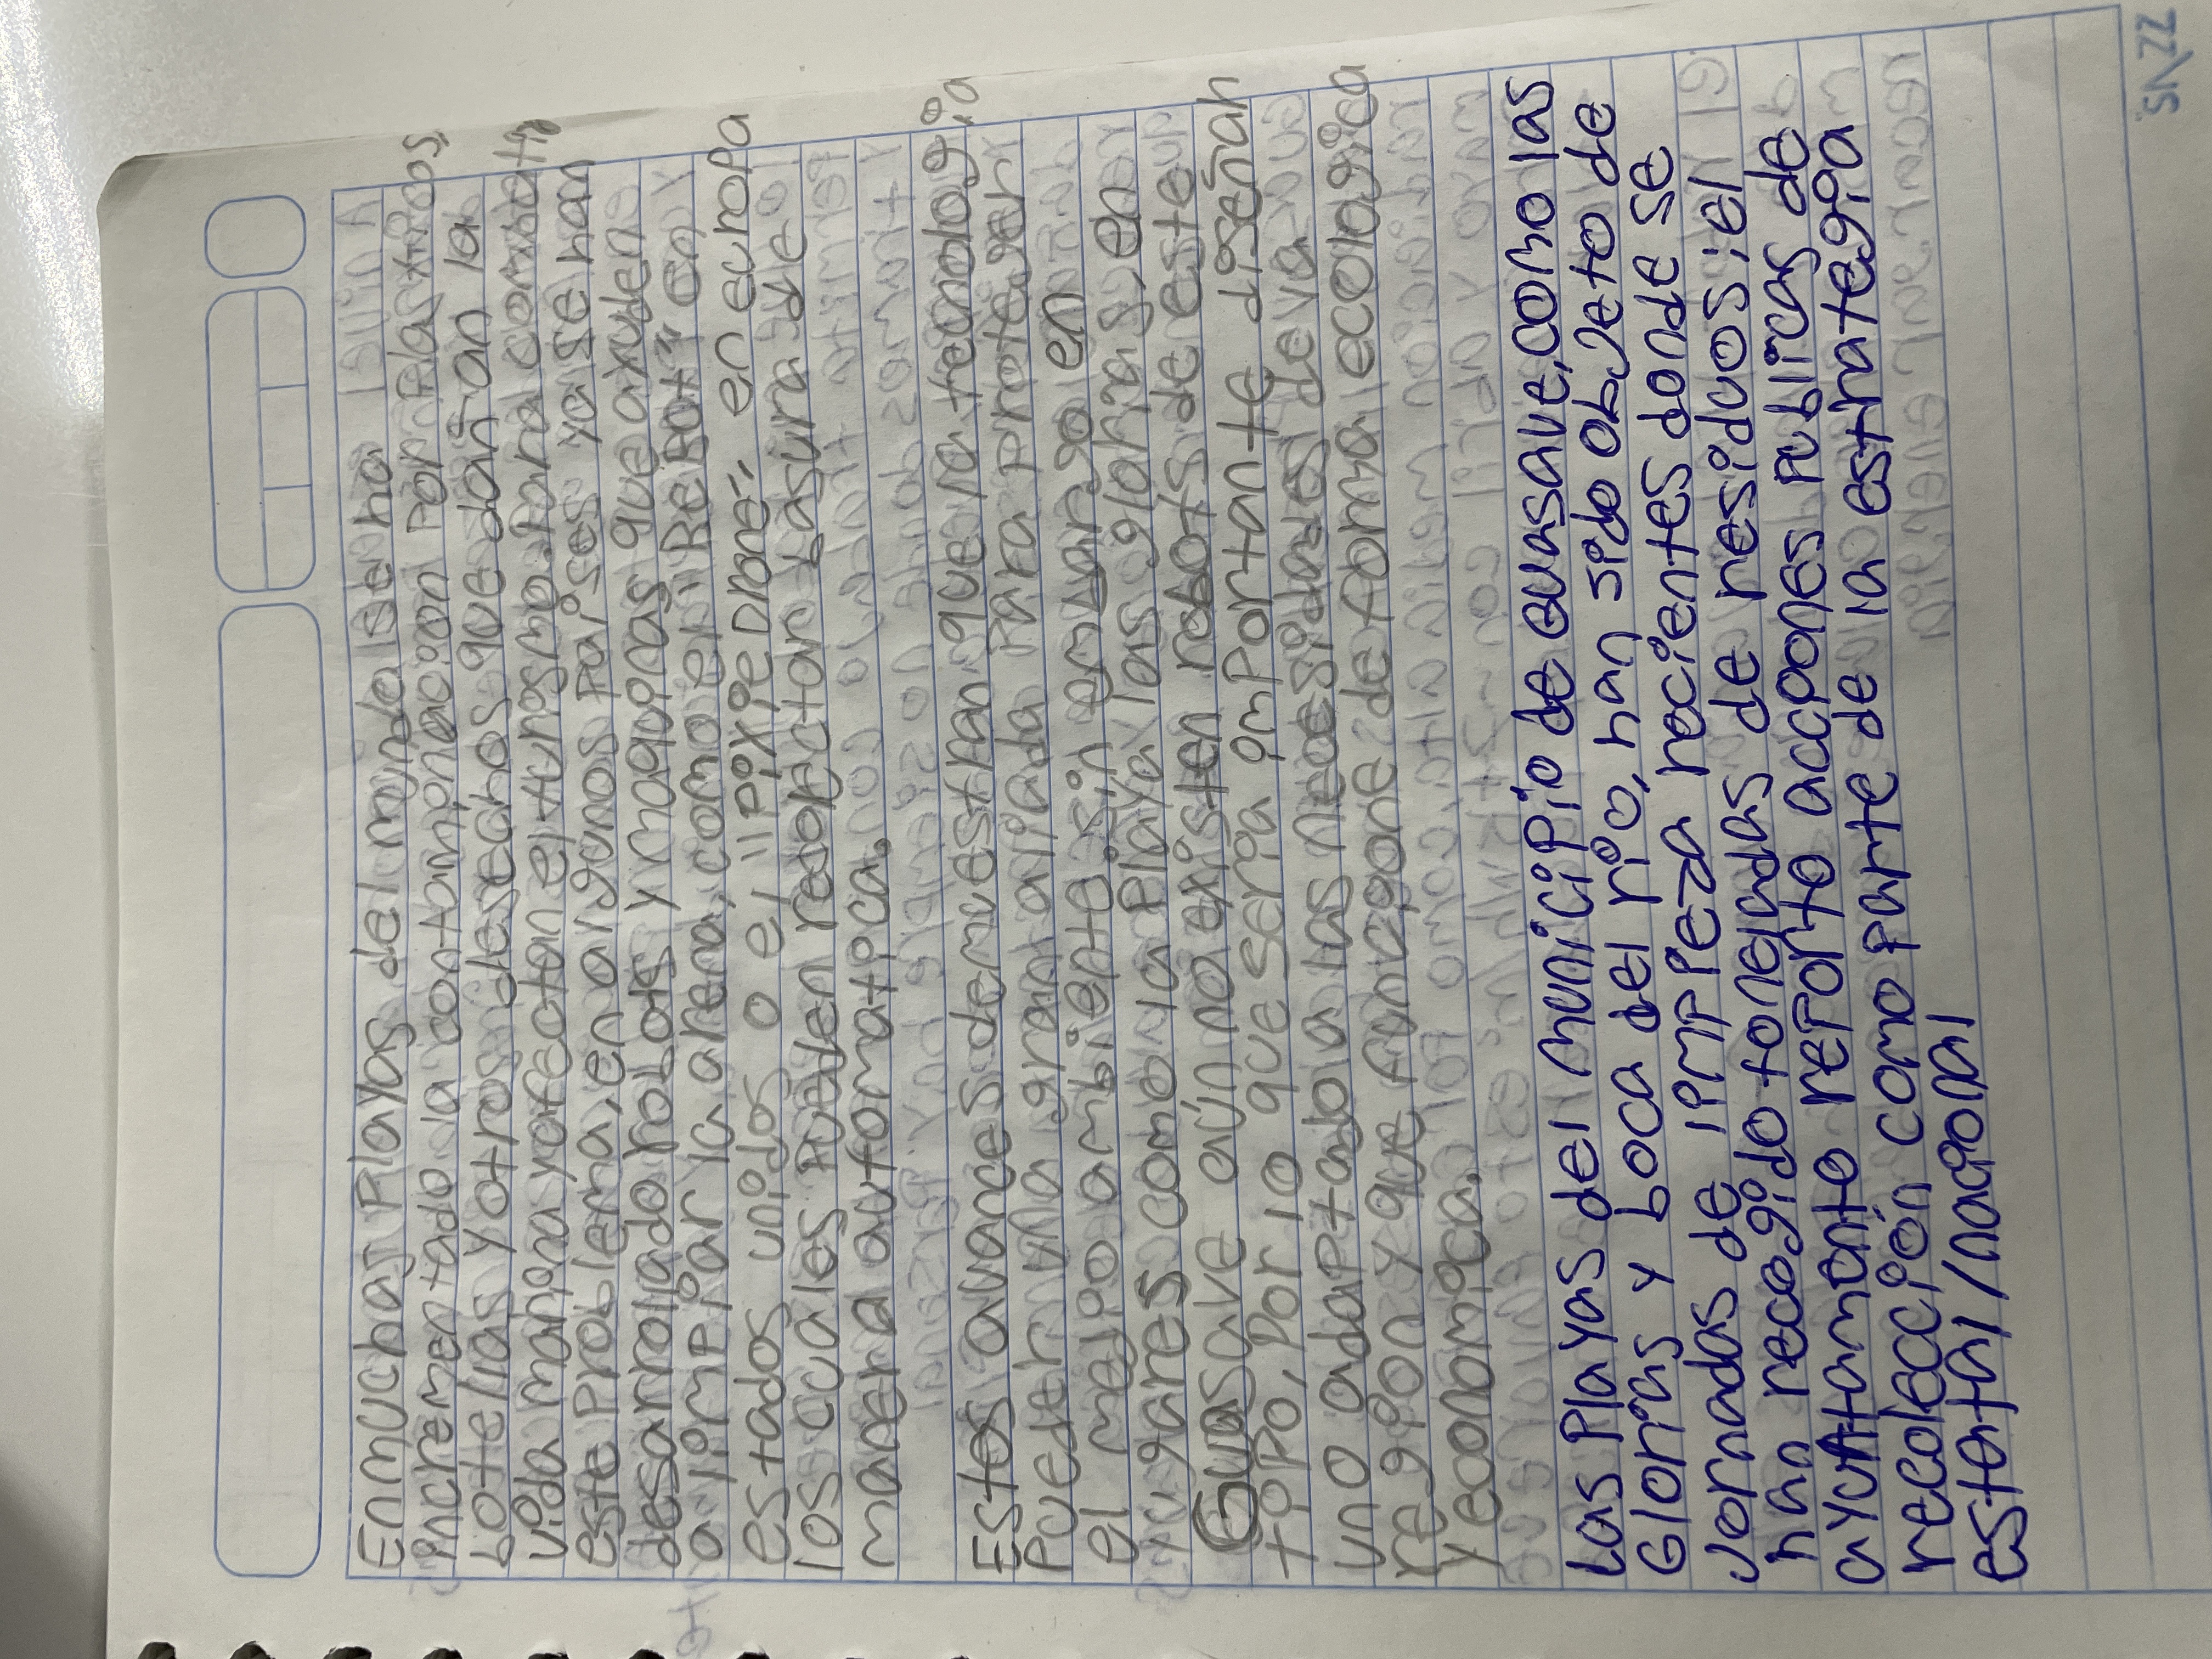 En muchas Playas del mundo se ha
incrementado la contaminacion Por Plasticos,
botellas y otros desechos que dañan la
vida marina y afectan el turismo. Para combatir
este Problema, en algunos Países ya se han
desarrollado robots y maquinas que ayuden
a limpiar la arena, como el "BeBot" en
estados unidos o el "Pixie Drone" en europa
los cuales Pueden recolectar basura de
manera automatica.
Estos avances demuestran que la tecnología
Puede ser una gran aliada Para Proteger
el medio ambiente, sin embargo en
lugares como la Playa las glorias, en
Guasave aún no existen robots de este
tipo, Por lo que seria importante diseñar
uno adaptado a las necesidades de la
región y que funcione de forma ecologica
y economica.
Las Playas del municipio de Guasave, como las
Glorias y boca del río, han sido objeto de
Jornadas de limpieza recientes donde se
han recogido toneladas de residuos; el
ayuntamiento reporto acciones publicas de
recolección como parte de la estrategia
estatal/nacional